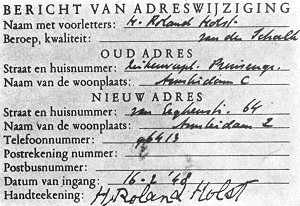 BERICHT VAN ADRESWIJZIGING
Naam met voorletters: H. Roland Holst
Beroep, kwaliteit: van der Schalk
OUD ADRES
Straat en huisnummer:
Naam van de woonplaats: Amsterdam C
NIEUW ADRES
Straat en huisnummer: van Eeghenstr. 64
Naam van de woonplaats: Amsterdam Z
Telefoonnummer: 96413
Postrekening nummer:
Postbusnummer:
Datum van ingang: 16-2 '48
Handteekening: H. Roland Holst